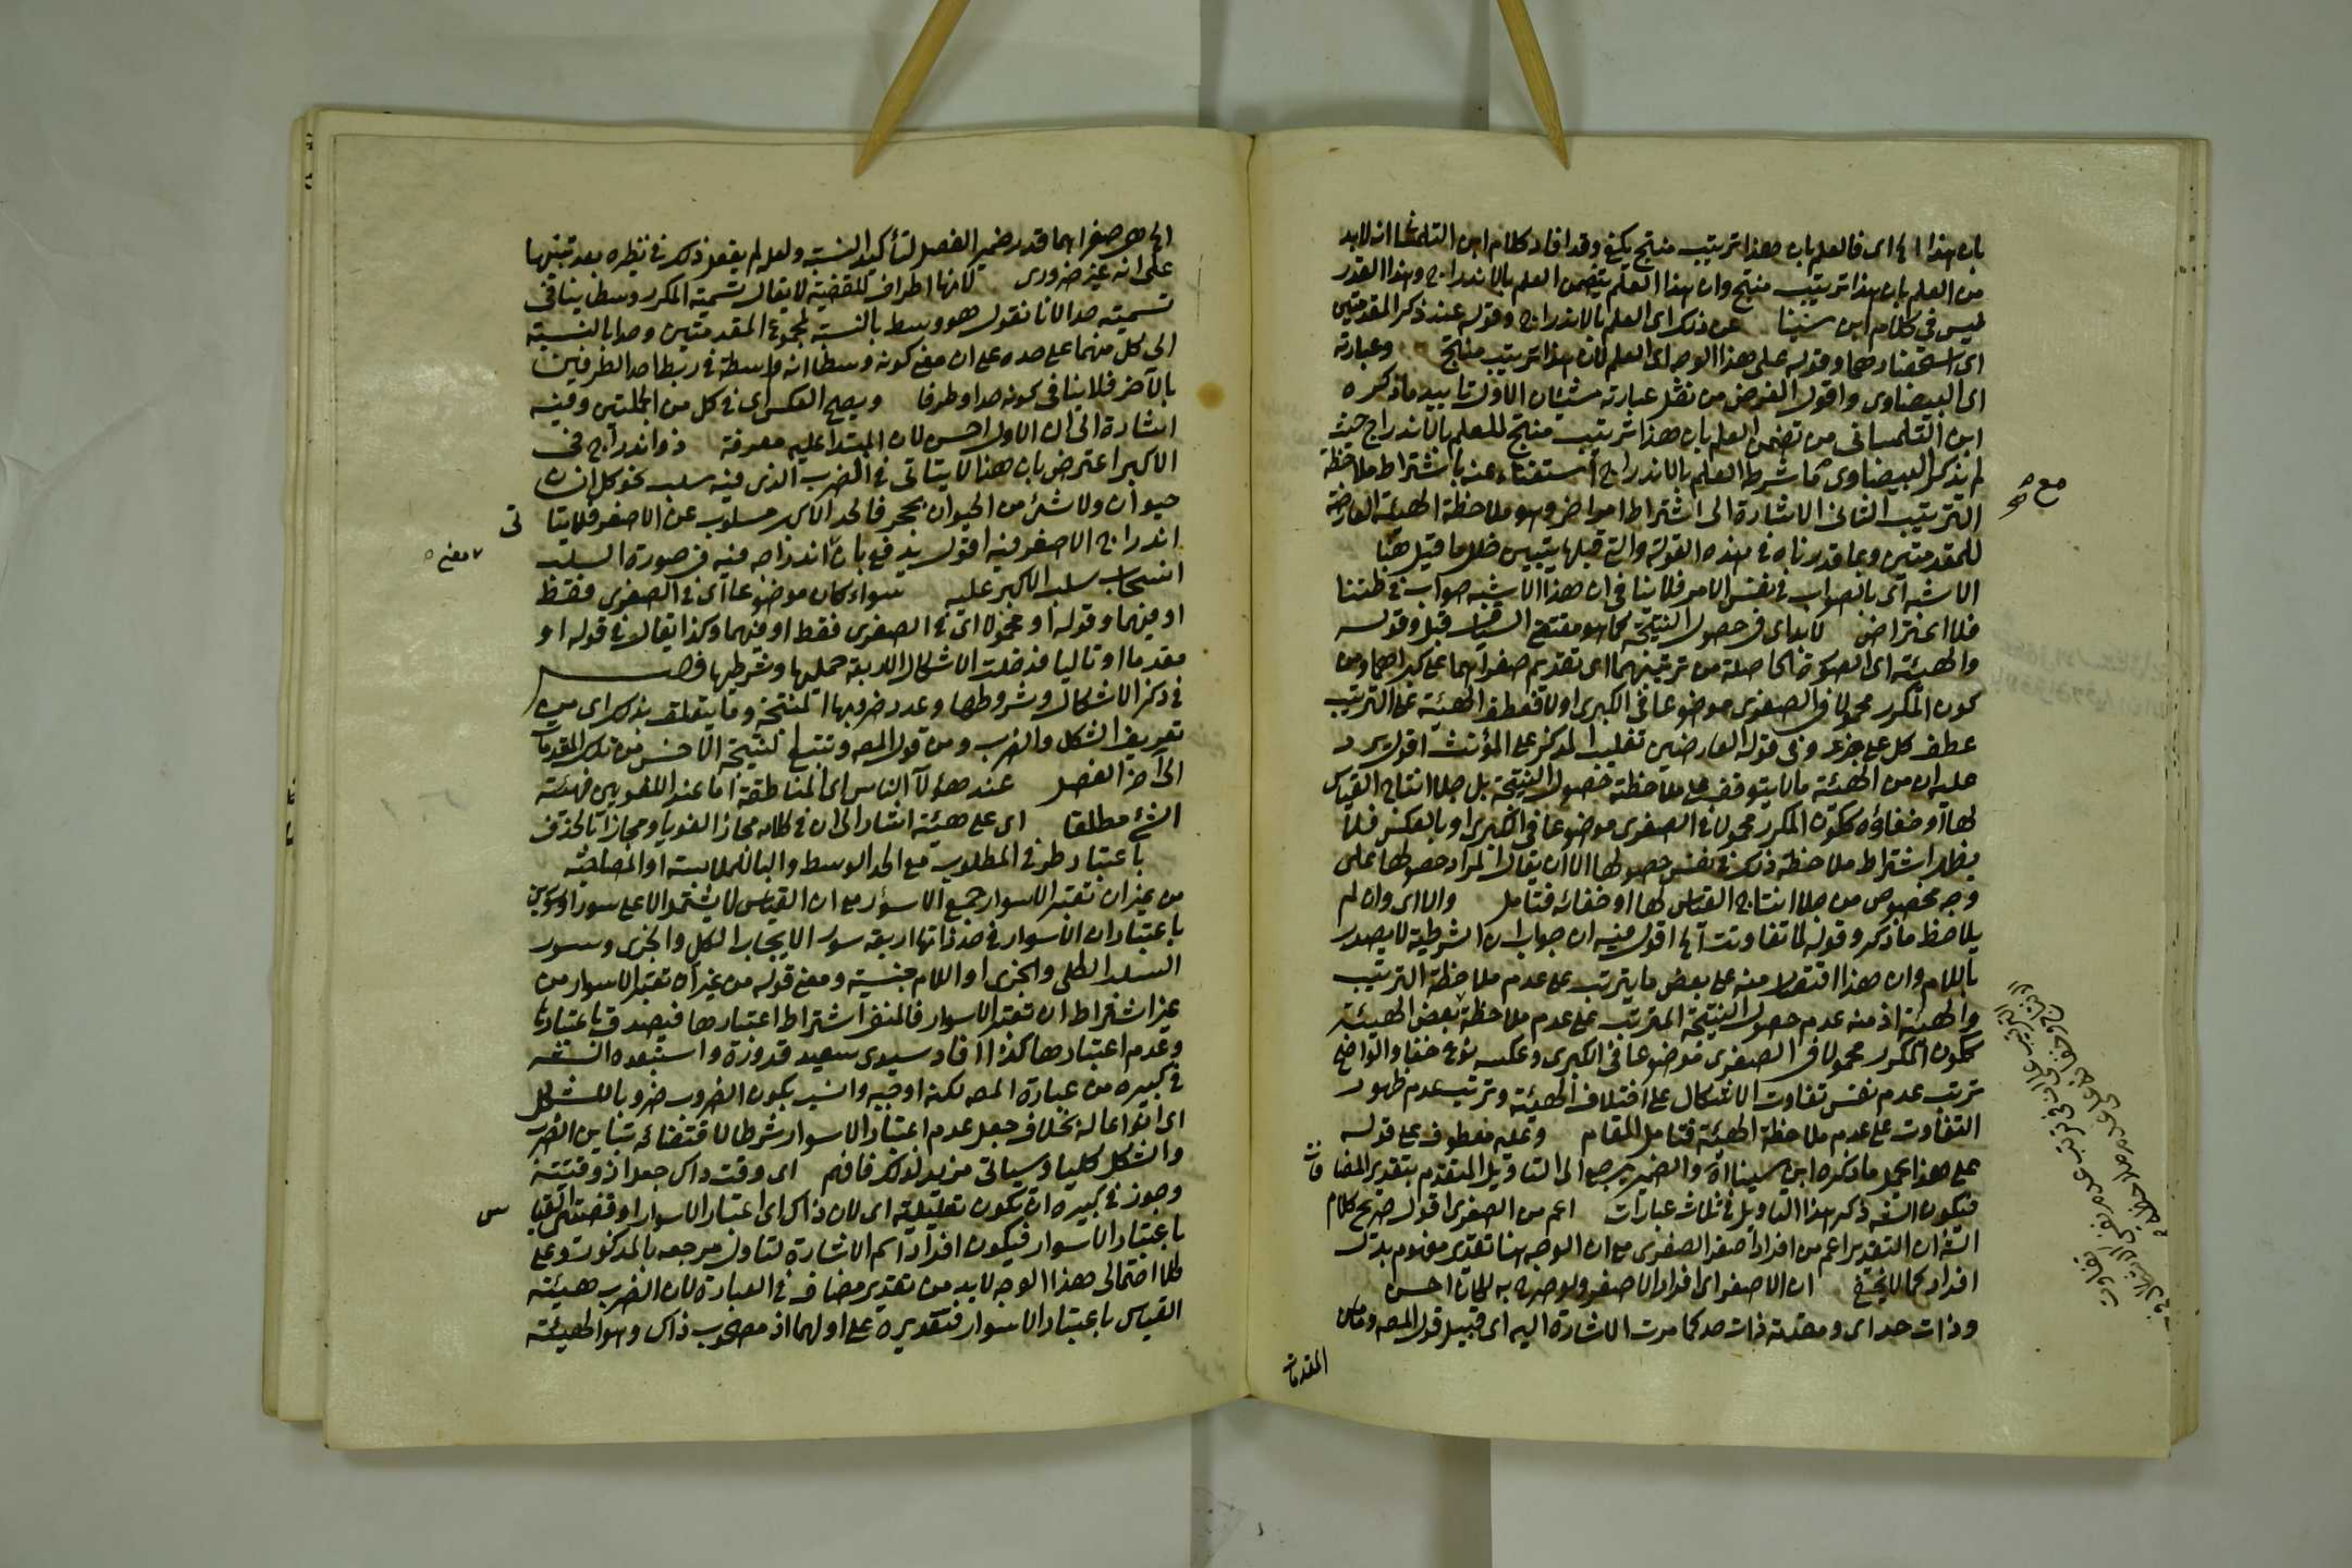 بان هذا الخ اى فالعلم بان هذا ترتيب منتج يكفى وقد افاد كلام ابن التلمسانى انه لابد
من العلم بان هذا ترتيب منتج وان هذا العلم يتضمن العلم بالاندراج وهذا القدر
ليس فى كلام ابن سينا عن ذلك اى العلم بالاندراج وقوله عند ذكر المقدمتين
اى استحضارهما وقوله على هذا الوجه اى العلم بان هذا ترتيب منتج وعبارته
اى البيضاوى واقول الغرض من نقل عبارته مشيئان الاول تاييد ماذكره
ابن التلمسانى من تضمن العلم بان هذا ترتيب منتج للعلم بالاندراج حيث
لم يذكر البيضاوى اشرط العلم بالاندراج استغناء عنه باشتراط ملاحظة
الترتيب الثانى الاشارة الى اشتراط امر اخر وهو ملاحظة الهيئة العارضة
للمقدمتين وبما قدرناه فى هذه القولة والتى قبلها يتبين خلل ما قيل هنا
الاشبه اى بالصواب فى نفس الامر فلاينافى ان هذا الاشبه صواب فى ظننا
فلا اعتراض لابد اى فى حصول النتيجة كما هو مقتضى السياق قبل وقوله
والهيئة اى الصورة الحاصلة من ترتيبهما اى تقديم صغراهما على كبراهما ومن
كون المكرر محمولا فى الصغرى موضوعا فى الكبرى اولا فعطف الهيئة على الترتيب
عطف كل على جزء وفى قوله العارضين تغليب المذكر على المؤنث اقول يرد
عليه ان من الهيئة مالايتوقف على ملاحظته حصول النتيجة بل جلا انتاج القياس
لها او خفاؤه ككون المكرر محمولا فى الصغرى موضوعا فى الكبرى او بالعكس فلا
يظهر اشتراط ملاحظة ذلك فى نفس حصولها الا ان يقال المراد حصولها على
وجه مخصوص من جلا انتاج القياس لها او خفائه فتامل والا اى وان لم
يلاحظ ماذكر وقوله لما تفاوتت الخ اقول فيه ان جواب ان الشرطية لايصدر
باللام وان هذا اقتصار منه على بعض مايترتب على عدم ملاحظة الترتيب
والهيئة اذ منه عدم حصول النتيجة المترتب على عدم ملاحظة بعض الهيئة
ككون المكرر محمولا فى الصغرى موضوعا فى الكبرى وعكسه نوع خفا والواضح
ترتب عدم نفس تفاوت الاشكال على اختلاف الهيئة وترتب عدم ظهور
التفاوت على عدم ملاحظة الهيئة فتامل المقام وعليه معطوف على قوله
على هذا يحمل ماذكره ابن سينا الخ والضمير يرجع الى التاويل المتقدم بتقدير المضا
ف
فيكون الشه ذكر هذا التاويل فى ثلاث عبارات اعم من الصغرى اقول صريح كلام
الشه ان التقدير اعم من افراد اصغر الصغرى مع ان الوجه هنا تقدير مفهوم بدل
افراد كما لايخفى ان الاصغر اى افراد الاصغر ولو صرح به لكان احسن
وذات حد اى ومقدمة ذات حد كما مرت الاشارة اليه اى قبيل قول المصه وما من
المقدمات
مع
صح
الخ هى صغراهما قدر ضمير الفصل لتأكيد النسبة ولعله لم يفعل ذلك فى نظيره بعد تنبيها
على انه غير ضرورى لانها اطراف للقضية لايقال تسمية المكرر وسطا ينافى
تسميته حدا لانا نقول هو وسط بالنسبة لمجموع المقدمتين وحدا بالنسبة
الى كل منهما على حده على ان معنى كونه وسطا انه واسطة فى ربط احد الطرفين
بالآخر فلاينافى كونه حدا وطرفا ويصح العكس اى فى كل من الجملتين وفيه
اشارة الى ان الاول احسن لان المبتدا عليه معرفة ذو اندراج فى
الاكبر اعترض بان هذا لايتاتى فى الضرب الذى فيه سلب نحو كل انسان
حيوان ولاشئ من الحيوان بحجر فالحد الاكبر مسلوب عن الاصغر فلايتا
تى
اندراج الاصغر فيه اقول يدفع بان اندراجه فيه فى صورة السلب
معنى
انسحاب سلب الاكبر عليه سواء كان موضوعا اى فى الصغرى فقط
او فيهما وقوله او محمولا اى فى الصغرى فقط او فيهما وكذا يقال فى قوله او
مقدما او تاليا فدخلت الاشكال الاربعة حمليها وشرطيها فصل
فى ذكر الاشكال وشروطها وعدد ضروبها المنتجة وما يتعلق بذلك اى من
تعريف الشكل والضرب ومن قول المصه وتتبع النتيجة الاخس من تلك المقدمات
الى آخر الفصل عند هؤلآ الناس اى المناطقة اما عند اللغويين فهيئة
الشئ مطلقا اى على هيئة اشار الى ان فى كلامه مجازا لغويا او مجازا بالحذف
باعتبار طرفى المطلوب مع الحد الوسط والبا للملابسة او المصاحبة
من غير ان تعتبر الاسوار جمع الاسوار مع ان القياس لايشتمل الا على سور او سورين
باعتبار ان الاسوار فى حد ذاتها اربعة سور الايجاب الكلى والجزى وسور
السلب الكلى والجزى او اللام جنسية ومعنى قوله من غير ان تعتبر الاسوار من
غير اشتراط ان تعتبر الاسوار فالمنفى اشتراط اعتبارها فيصدق باعتبارها
وعدم اعتبارها كذا افاد سيدى سعيد قدورة واستبعده الشه
فى كبيره من عبارة المصه لكنه اوجه وانسب بكون الضروب ضروبا للشكل
اى انواعا له بخلاف جعل عدم اعتبار الاسوار شرطا لاقتضائه تباين الضرب
والشكل كليا وسياتى مزيد لذلك فافهم اى وقت ذاك جعل اذ وقتية
وجوز فى كبيره ان تكون تعليلية اى لان ذاك اى اعتبار الاسوار او قضية القيا
س
باعتبار الاسوار فيكون افراد اسم الاشارة لتاول مرجعه بالمذكور وعلى
كلا احتمالى هذا الوجه لابد من تقدير مضاف فى العبارة لان الضرب هيئة
القياس باعتبار الاسوار فتقديره على اولهما اذ مصحوب ذاك وهو الهيئة